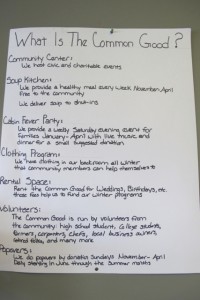 What Is The Common Good?
Community Center:
We host civic and charitable events
Soup Kitchen:
We provide a healthy meal every week November-April
free to the community
We deliver soup to shut-ins
Cabin Fever Party:
We provide a weekly Saturday evening event for
families January-April with live music and
dinner for a small suggested donation
Clothing Program:
We have clothing in our backroom all winter
that community members can help themselves to
Rental Space:
Rent The Common Good for Weddings, Birthdays, etc.
these fees help us to fund our winter programs
Volunteers:
The Common Good is run by volunteers from
the community: high school students, college students,
farmers, carpenters, chefs, local business owners,
and many more
Popovers:
We do popovers by donation Sundays November-April
Daily starting in June through the Summer months